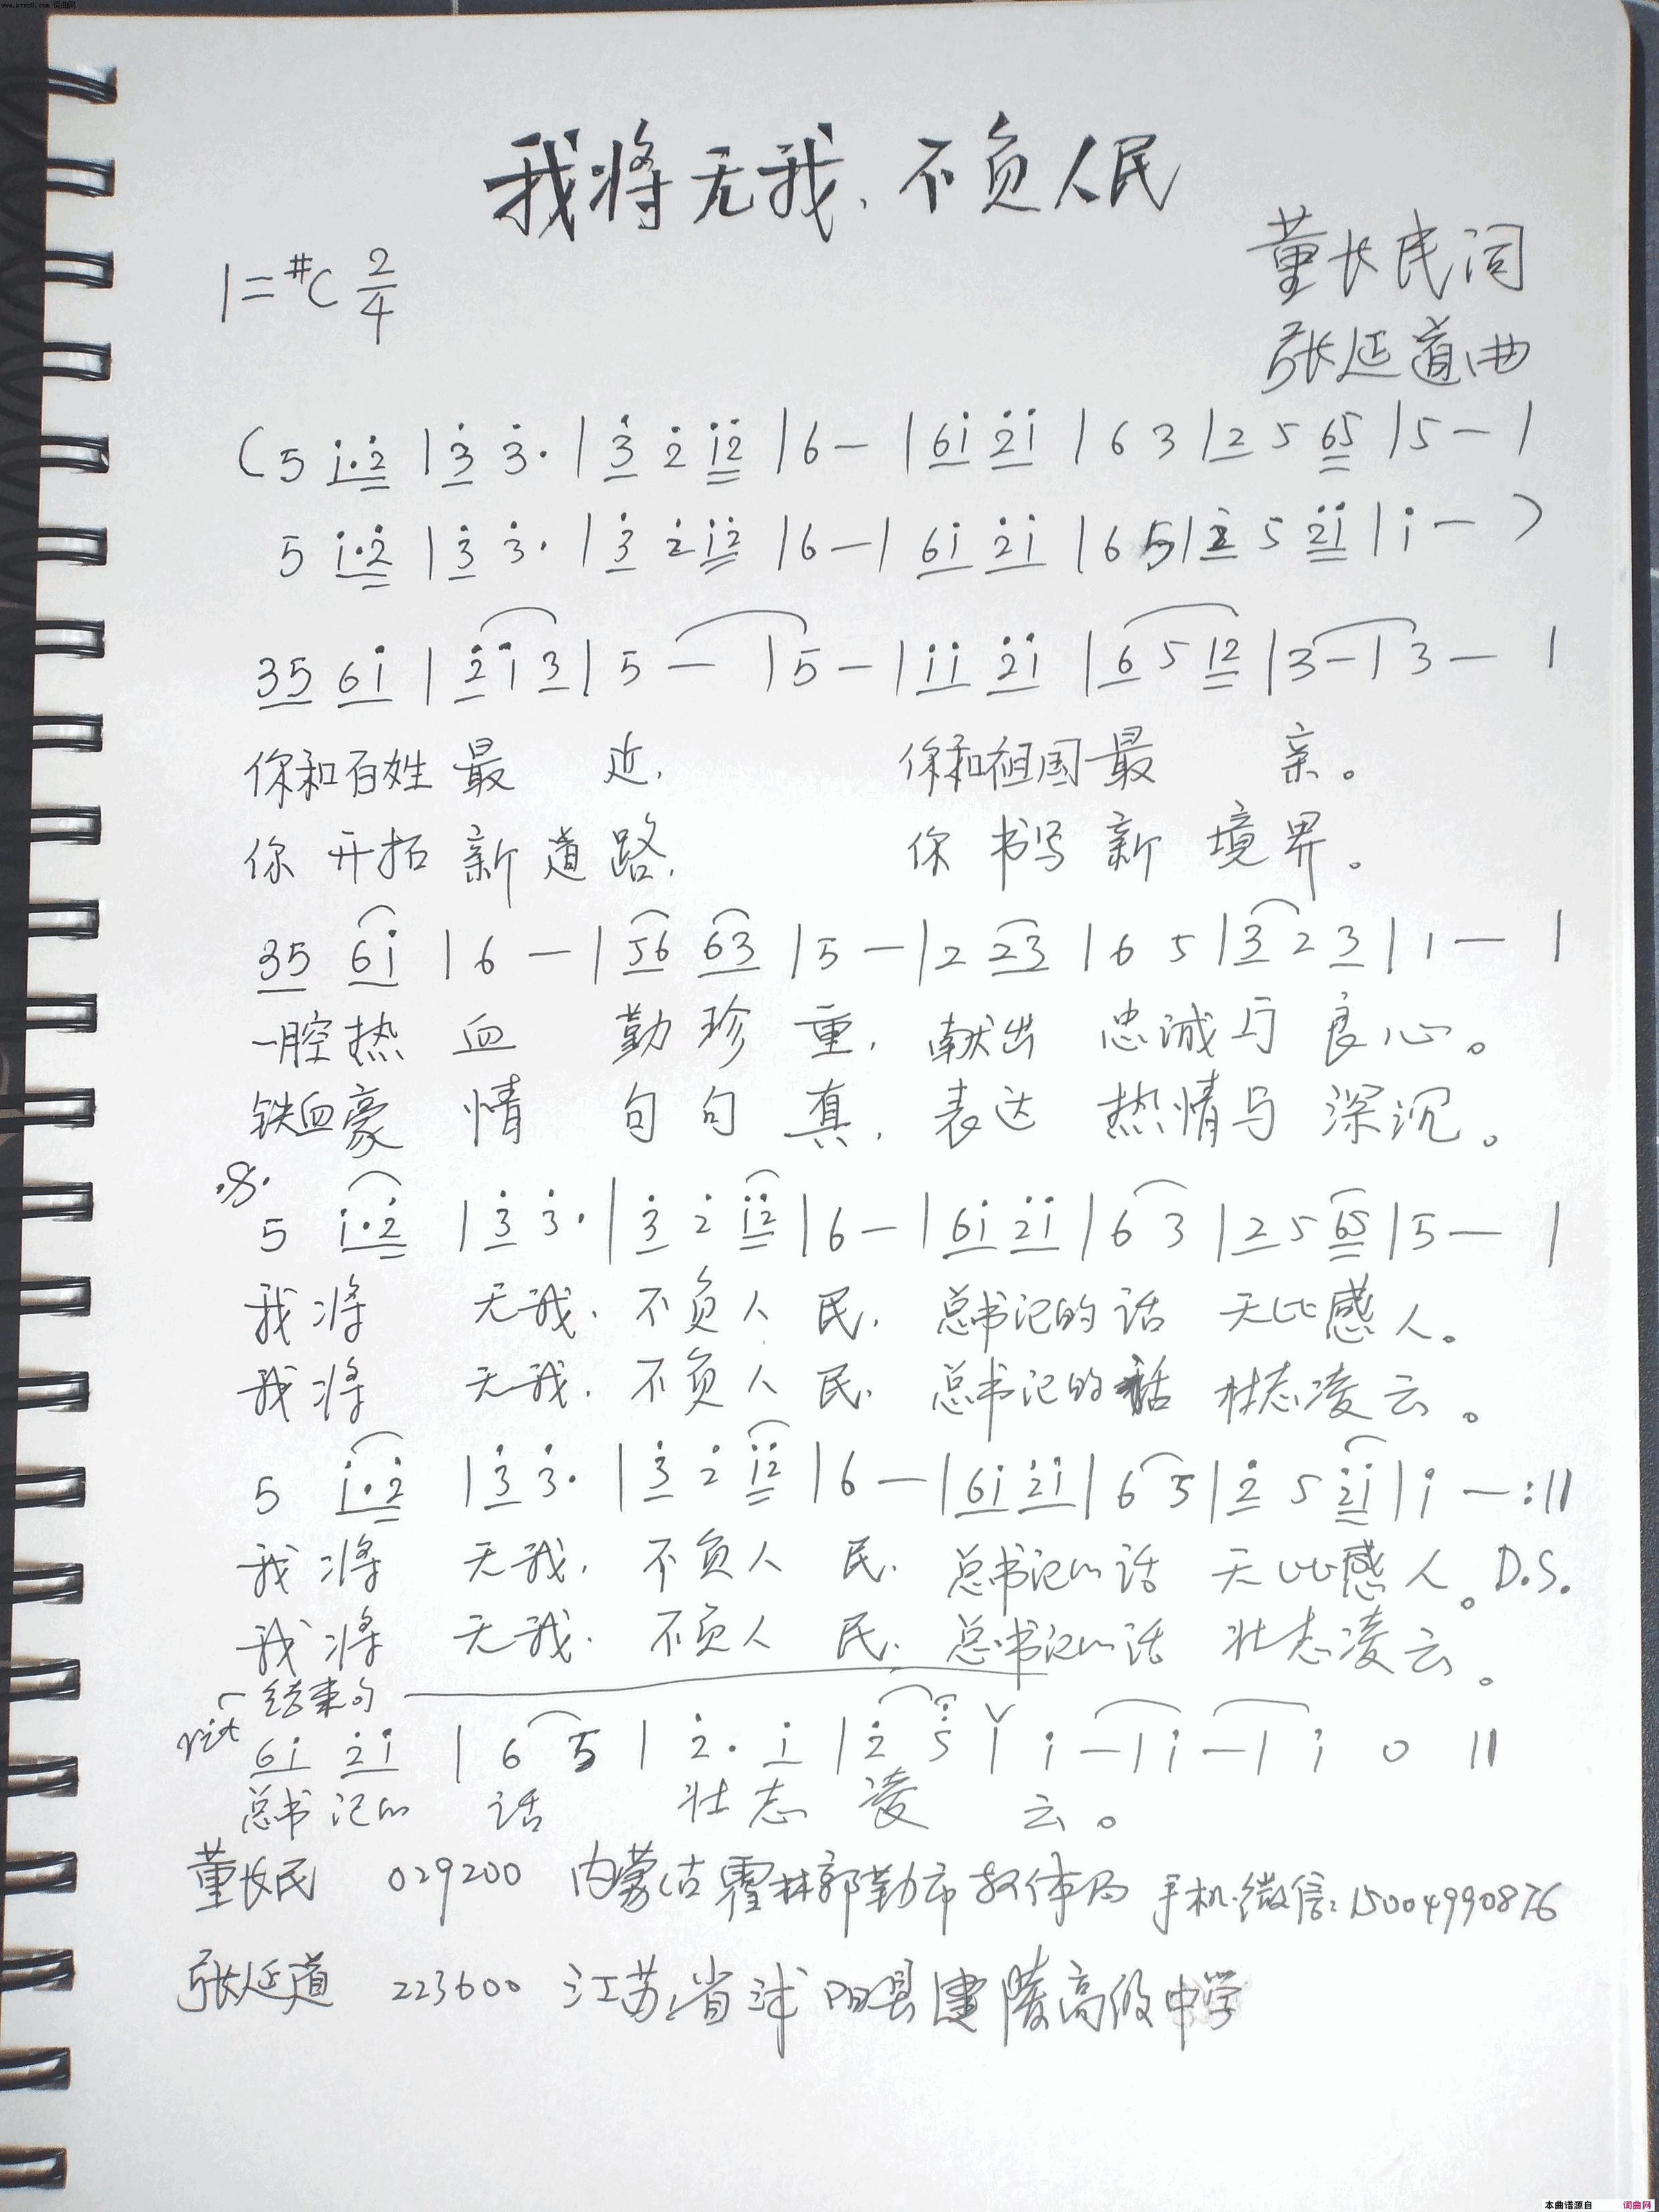 www.ktvc8.com 词曲网
我将无我、不负人民
董长民词
1=#C 2/4
张延道曲
(5 i·2̇ | 3̇ 3̇· | 3̇ 2̇ i2̇ | 6 — | 6i 2̇i | 6 3 | 2 5 65 | 5 — |
5 i·2̇ | 3̇ 3̇· | 3̇ 2̇ i2̇ | 6 — | 6i 2̇i | 6 5 | 2̇ 5 2̇i | i — )
35 6i | 2̇ i 3 | 5 — | 5 — | ii 2̇i | 6 5 12 | 3 — | 3 — |
你和百姓最 近, 你和祖国最 亲。
你开拓新道路, 你书写新境界。
35 6i | 6 — | 56 63 | 5 — | 2 23 | 6 5 | 3 2 3 | 1 — |
一腔热血 勤珍重, 献出忠诚与良心。
铁血豪情 句句真, 表达热情与深沉。
5 i·2̇ | 3̇ 3̇· | 3̇ 2̇ i2̇ | 6 — | 6i 2̇i | 6 3 | 2 5 65 | 5 — |
我将 无我, 不负人民, 总书记的话 无比感人。
我将 无我, 不负人民, 总书记的话 壮志凌云。
5 i·2̇ | 3̇ 3̇· | 3̇ 2̇ i2̇ | 6 — | 6i 2̇i | 6 5 | 2̇ 5 2̇i | i — :||
我将 无我, 不负人民, 总书记的话 无比感人。D.S.
我将 无我, 不负人民, 总书记的话 壮志凌云。
rit 结束句
6i 2̇i | 6 5 | 2̇· i | 2̇ 5̇ | i — | i — | i 0 ||
总书记的 话 壮志凌 云。
董长民 029200 内蒙古霍林郭勒市教体局 手机微信:15004990876
张延道 223600 江苏省沭阳县建陵高级中学
本曲谱源自 词曲网